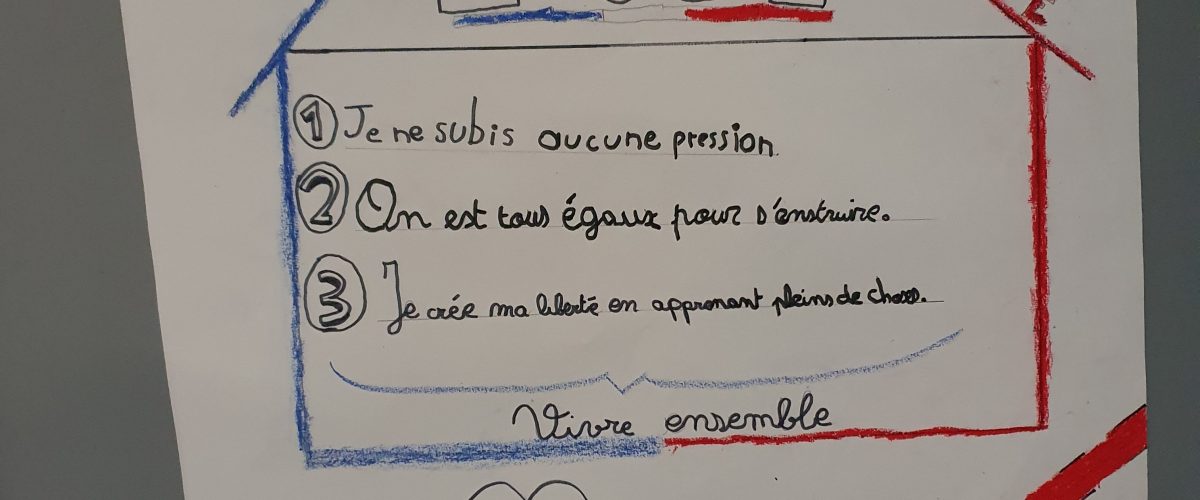 1 Je ne subis aucune pression.
2 On est tous égaux pour s'enstruire.
3 Je crée ma liberté en apprenant pleins de choses.
Vivre ensemble